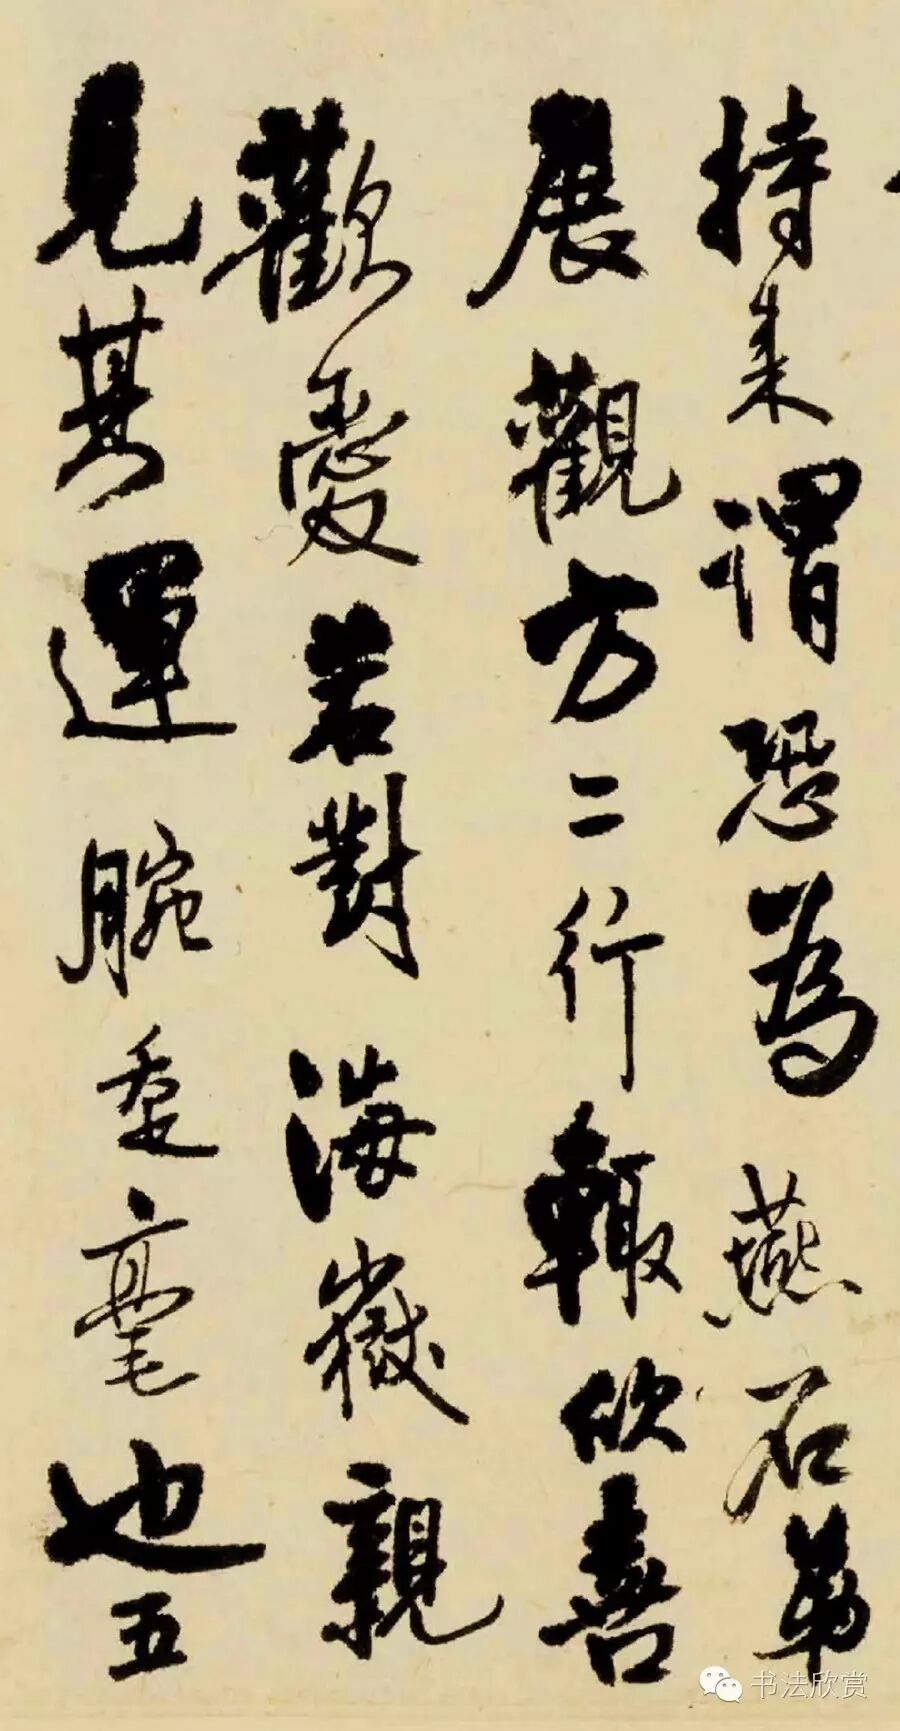 持来謂恐為燕石弟
展觀方二行輒欣喜
歡愛若對海嶽親
見其運腕垂毫也五
书法欣赏